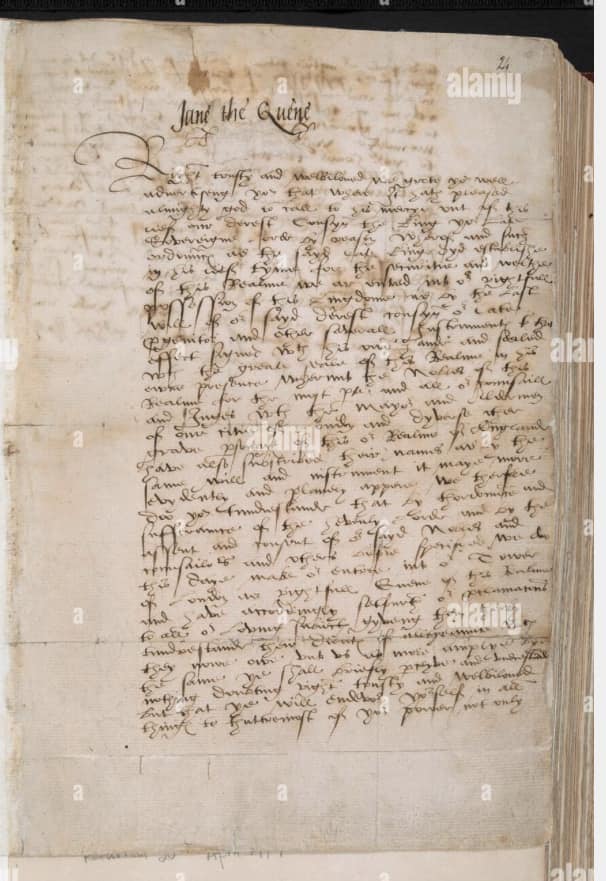 24
Jane the Quene
Right trusty and welbiloued we grete ye well
advertiseng you that where it hath pleased
almighty god to call to his mercye out of this
lief our derest Cousyn the King yor late
Sovereigne lorde by reason wherof and such
ordenaunce as the sayd late King dyd establishe
in his lief tyme for the securitie and wealthe
of this Realme we ar entred into or rightfull
possession of this kingdome as by the last
will of or sayd derest cousyn or late
progenitor and other severall instruments to that
effect signed wth his own hande and sealed
wth the greate seale of this Realme in his
owne presence wherunto the Nobles of this
Realme for the most pte and all or counsaill
and Juges wth the Mayor and Aldermen
of our citie of London and dyverse other
grave psonages of this or Realme of England
have also subscribed there names as by the
same will and instrument it maye more
evydently and plainly appere We therfore
do you tunderstande that by thordinance and
sufferaunce of the hevenly lord and by the
assent and consent of or sayd Nobles and
counsailors and others before specifyed We do
this daye make or entree into or Tower
of London as rightfull Quene of this Realme
and have accordingly sett furth or proclamacions
to all or loving subiects gyveng them therby
tunderstande their duties of allegeaunce wch
they nowe owe unto us as more amply by
the same ye shall briefly pceyve and understand
nothing doubting right trusty and welbiloued
but that ye will endevor yorself in all
things to thuttermost of yor power not only
alamy